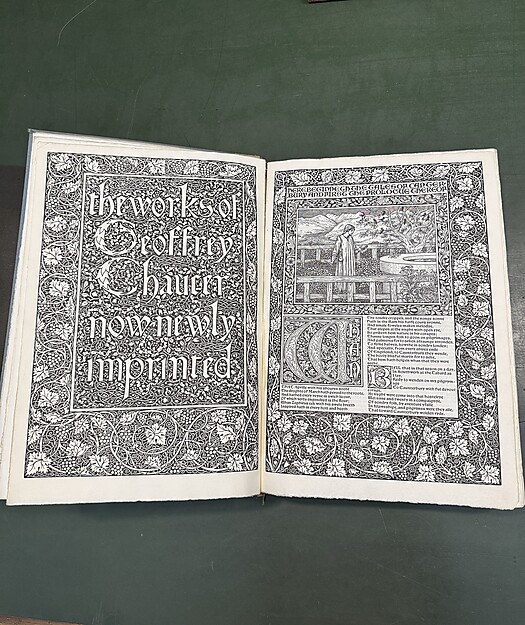 the works of
Geoffrey
Chaucer
now newly
imprinted
HERE BEGINNETH THE TALES OF CANTER
BURY AND FIRST THE PROLOGUE THEREOF
The tendre croppes, and the yonge sonne
Hath in the Ram his halfe cours yronne,
And smale foweles maken melodye,
That slepen al the nyght with open eye,
So priketh hem nature in hir corages;
Thanne longen folk to goon on pilgrimages,
And palmeres for to seken straunge strondes,
To ferne halwes, kowthe in sondry londes;
And specially, from every shires ende
Of Engelond, to Caunterbury they wende,
The hooly blisful martir for to seke,
That hem hath holpen whan that they were
BIFIL that in that seson on a day,
In Southwerk at the Tabard as
Redy to wenden on my pilgrym
age
To Caunterbury with ful devout
At nyght were come into that hostelrye
Wel nyne and twenty in a compaignye,
Of sondry folk, by aventure yfalle
In felaweshipe, and pilgrimes were they alle,
That toward Caunterbury wolden ryde.
WHAN
THAT Aprille with his shoures soote
The droghte of March hath perced to the roote,
And bathed every veyne in swich licour,
Of which vertu engendred is the flour;
Whan Zephirus eek with his swete breeth
Inspired hath in every holt and heeth